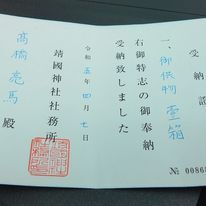 受納証
一、御供物 壹箱
右御特志の御奉納
受納致しました
令和五年四月七日
靖國神社社務所
髙橋亮馬 殿
№ 0086